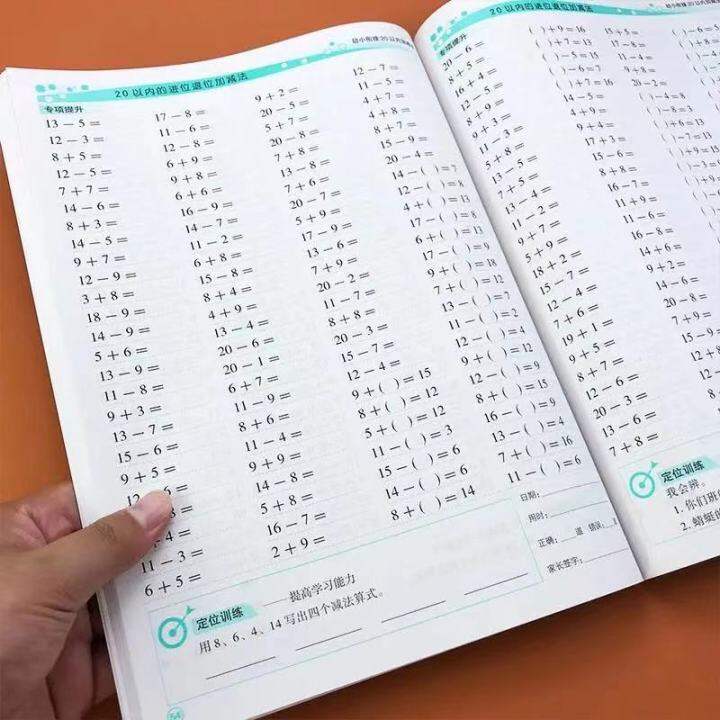 20以内的进位退位加减法
专项提升
13－5＝
12－3＝
8＋5＝
12－5＝
7＋7＝
14－6＝
8＋3＝
14－5＝
9＋7＝
12－9＝
3＋8＝
18－9＝
14－9＝
5＋6＝
13－9＝
11－8＝
9＋3＝
13－7＝
15－6＝
9＋5＝
6＝
8＝
4＝
11－3＝
6＋5＝
17－8＝
11－6＝
12－8＝
6＋9＝
9＋8＝
6＋6＝
16－9＝
14－7＝
11－2＝
6＋8＝
15－8＝
8＋4＝
4＋9＝
13－4＝
20－6＝
20－1＝
6＋7＝
11－9＝
8＋6＝
11－4＝
9＋9＝
14－8＝
5＋8＝
16－7＝
2＋9＝
9＋2＝
20－5＝
5＋7＝
20－8＝
7＋8＝
13－8＝
7＋6＝
20－7＝
5＋9＝
17－9＝
13－6＝
7＋9＝
20－2＝
11－7＝
8＋8＝
20－3＝
15－7＝
12－4＝
9＋( )＝15
8＋( )＝12
5＋( )＝12
11－( )＝3
15－( )＝6
14－( )＝6
8＋( )＝14
12－7＝
11－5＝
4＋7＝
4＋8＝
8＋7＝
15－9＝
20－4＝
14－( )＝7
12－( )＝8
4＋( )＝13
17－( )＝8
6＋( )＝13
17－( )＝9
9＋( )＝18
7＋( )＝12
13－( )＝7
11－( )＝2
12－( )＝4
9＋( )＝12
12－( )＝9
8＋( )＝15
16－( )＝9
13－( )＝4
7＋( )＝16
11－( )＝6
日期:
用时:
正确: 道 错误:
家长签字:
定位训练 ——提高学习能力
用8、6、4、14写出四个减法算式。
54
幼小衔接20以内
20以内的进位退位加减法
专项提升
20－6＝
8＋5＝
16＋4＝
12－5＝
8＋9＝
9＋3＝
11－3＝
5＋8＝
13－5＝
7＋5＝
13－4＝
11－2＝
9＋7＝
5＋9＝
18＋2＝
15－7＝
12－4＝
7＋6＝
19＋1＝
9＋5＝
8＋7＝
12－6＝
20－3＝
13－6＝
7＋8＝
( )＋9＝16
( )＋7＝13
( )－5＝15
( )－6＝7
( )＋7＝16
14－5＝
4＋9＝
9＋4＝
17－9＝
15－6＝
8＋8＝
16－7＝
11＋9＝
11－6＝
16－8＝
14＋6＝
9＋2＝
14－6＝
20－8＝
15－9＝
15＋5＝
17－8＝
11－4＝
9＋8＝
20－2＝
( )－4＝8
( )－8＝3
( )＋6＝13
( )－7＝13
定位训练
我会辨。
1. 你们班
2. 蜻蜓的